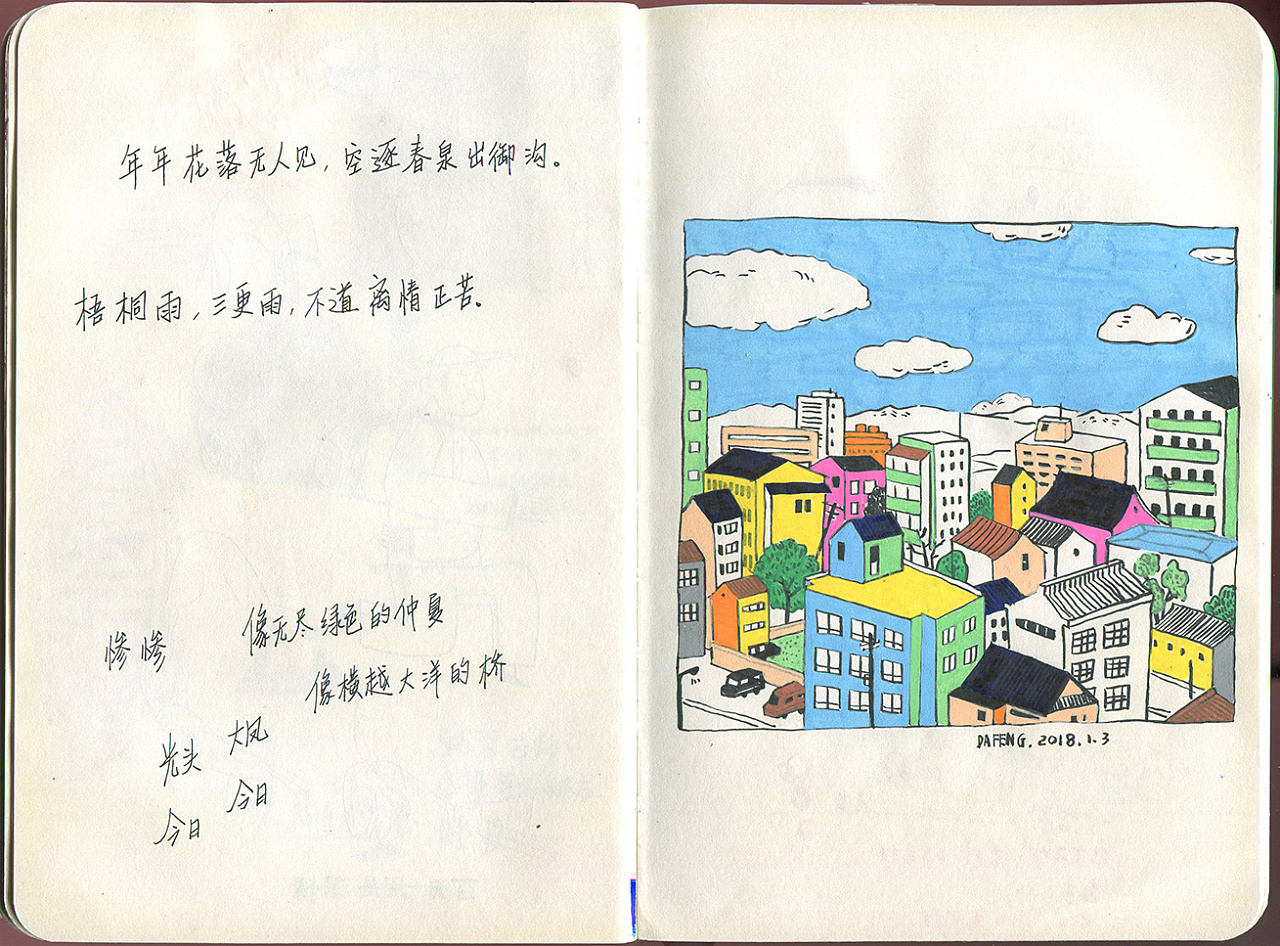 年年花落无人见，空逐春泉出御沟。
梧桐雨，三更雨，不道离情正苦。
像无尽绿色的仲夏
惨惨
像横越大洋的桥
大风
光头
今日
今日
DAFENG. 2018.1.3